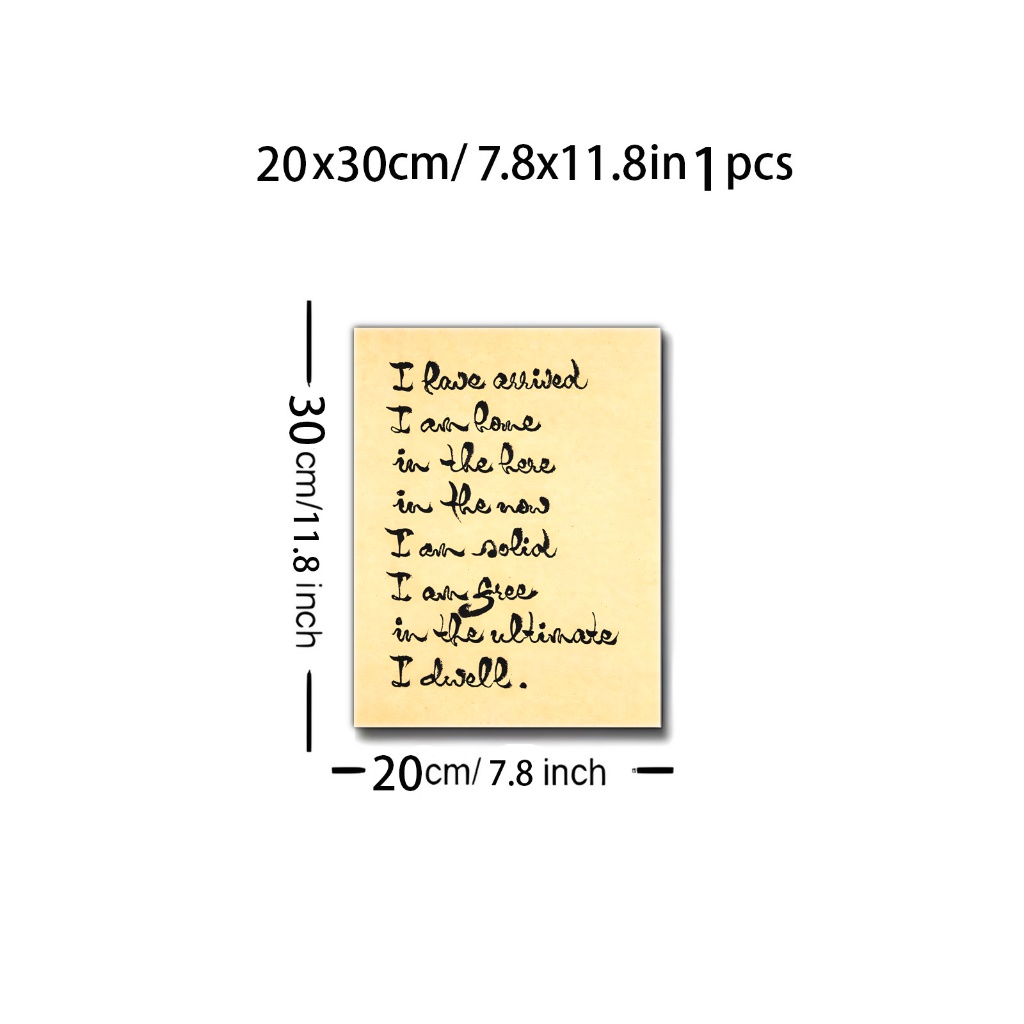 20x30cm/ 7.8x11.8in 1 pcs
30cm/11.8 inch
I have arrived
I am home
in the here
in the now
I am solid
I am free
in the ultimate
I dwell.
20cm/ 7.8 inch